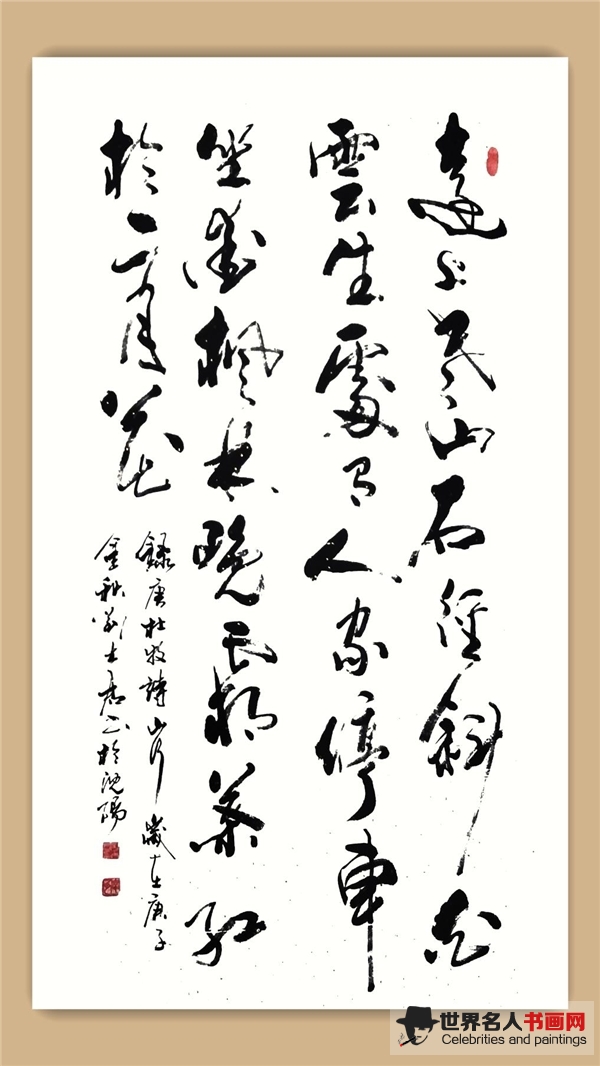 遠上寒山石徑斜白
雲生處有人家停車
坐愛楓林晚霜葉紅
於二月花
錄唐杜牧詩山行 歲在庚子
金秋 於沈陽
世界名人书画网
Celebrities and paintings